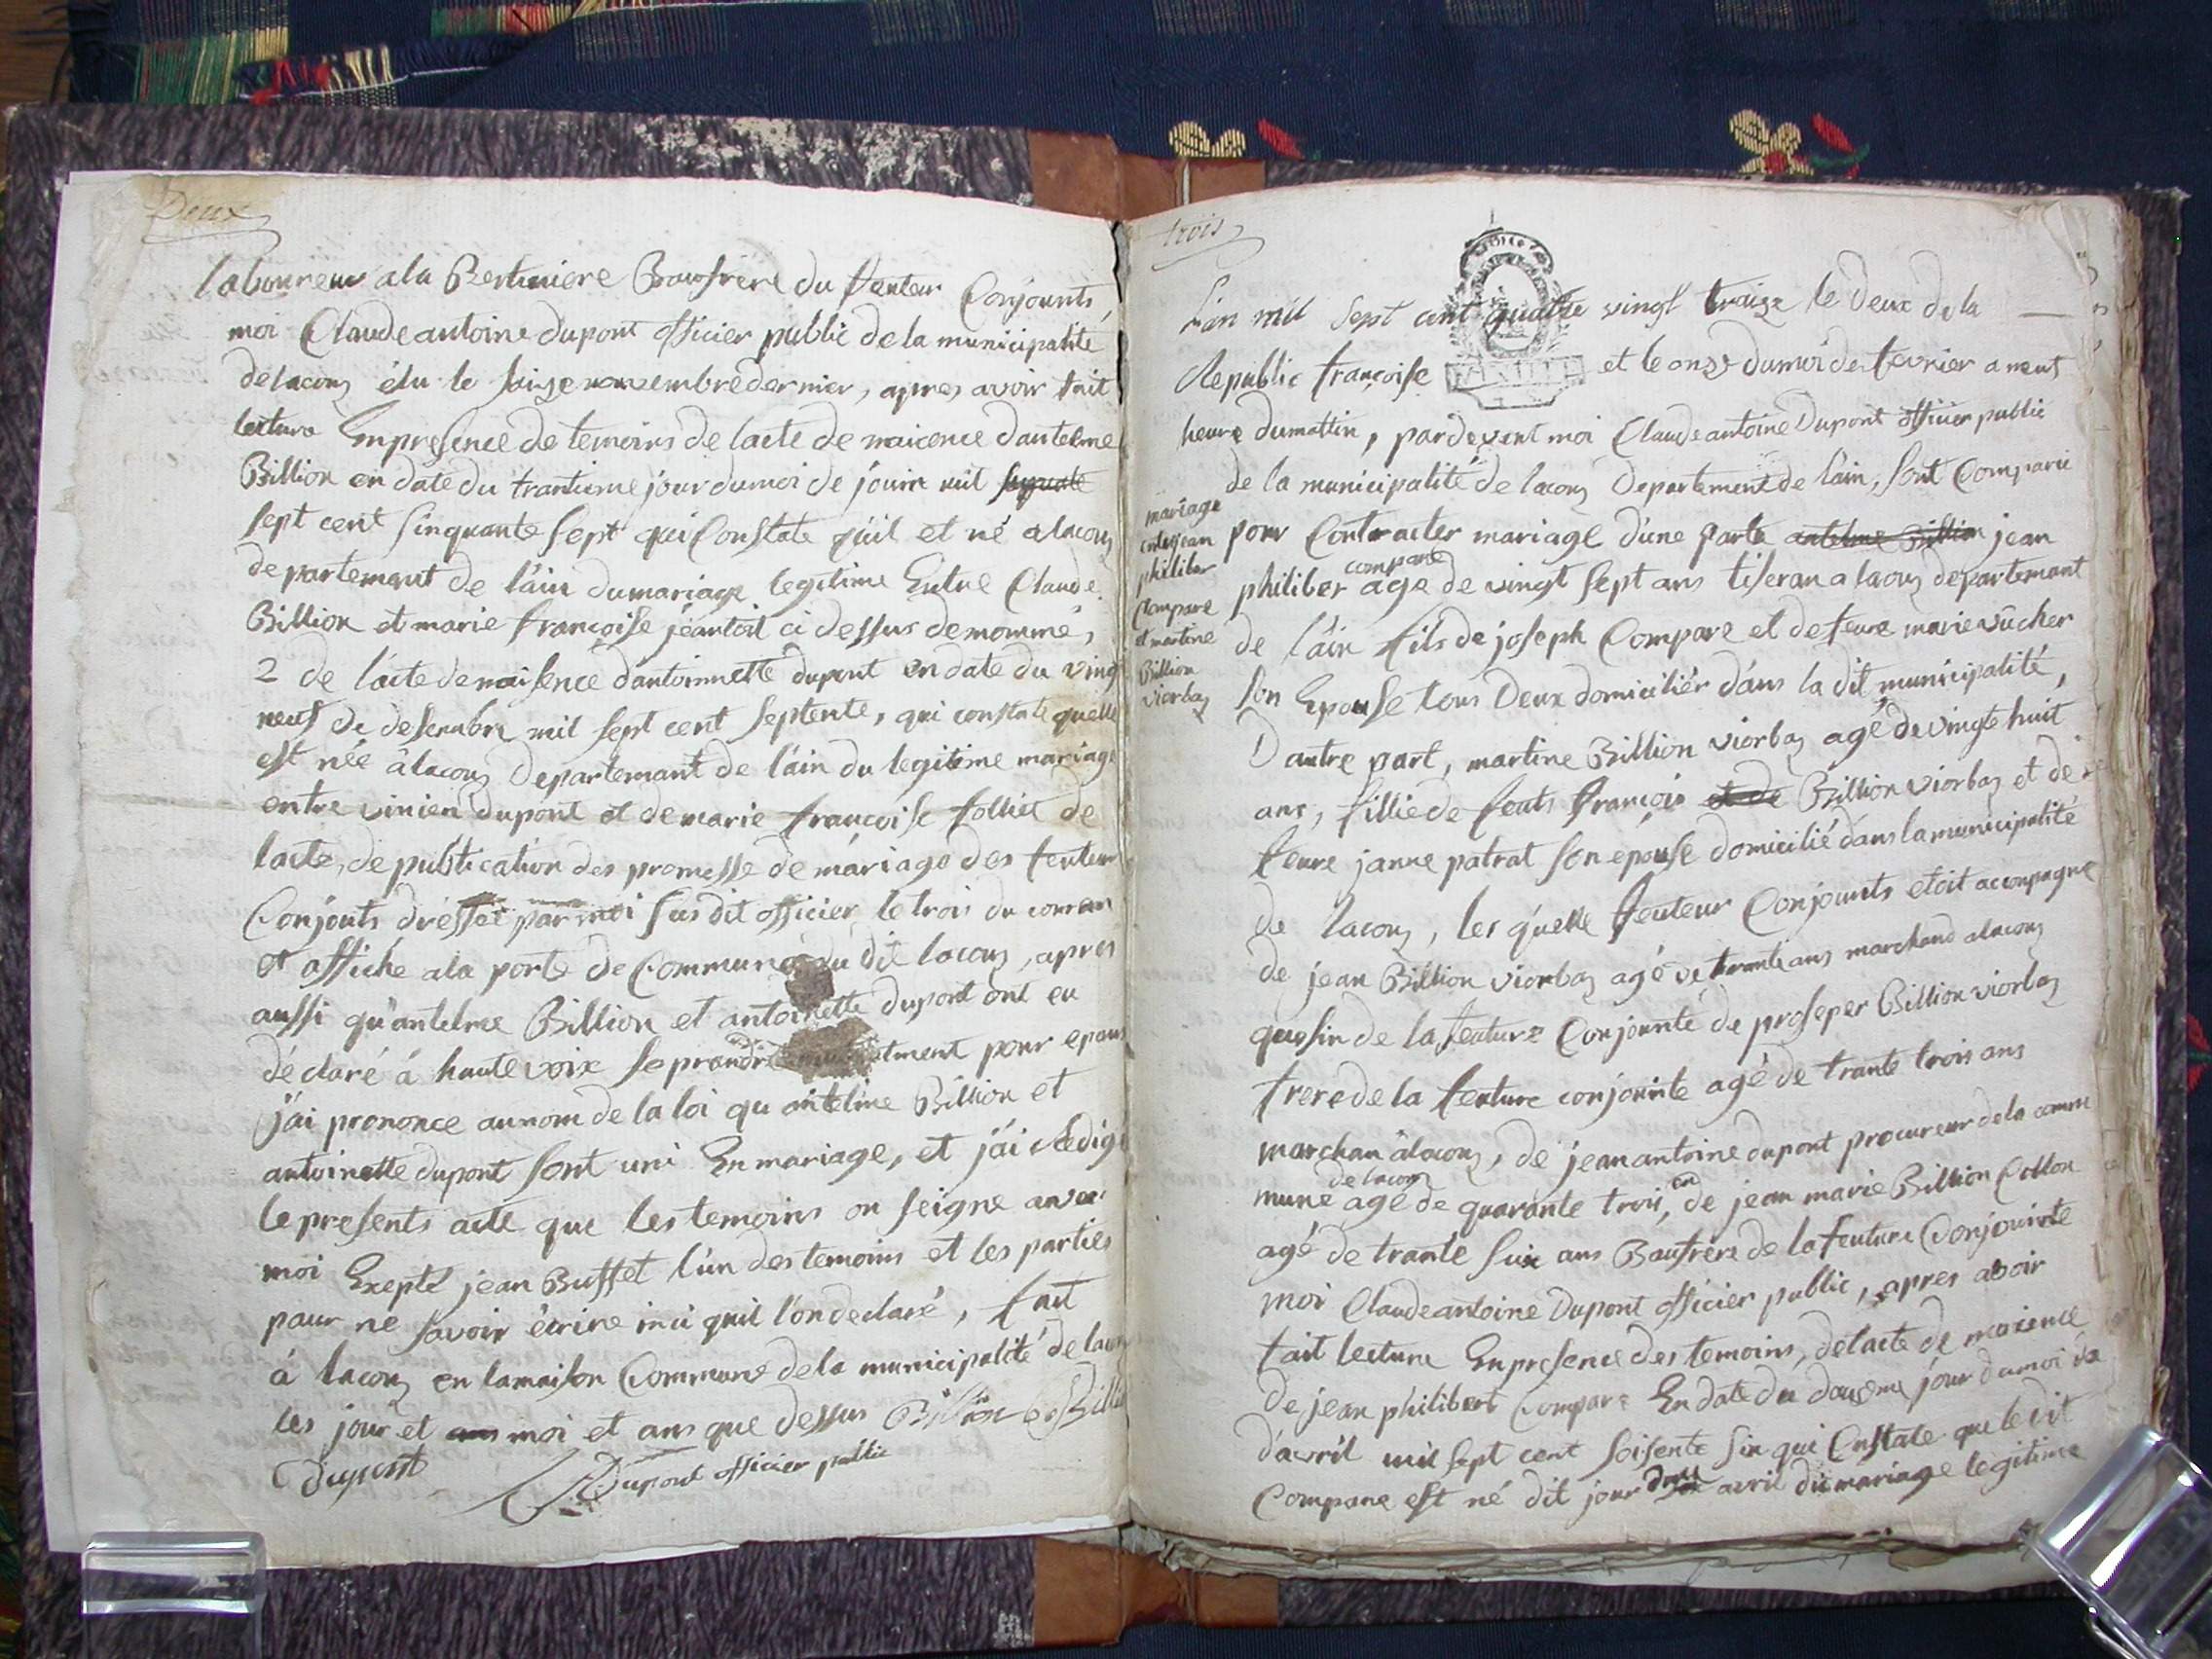 Deux
laboureur a la Bertiniere Beaufrere du feuteur Conjounts,
moi Claude antoine dupont officier public de la municipalité
de lacoux élu le novembre dernier, apres avoir fait
lecture Enpresence de temoins de lacte de naicence dantelme
Billion en date du trantieme jour du moi de jouin mil
sept cent sinquante sept qui Constate quil et né a lacoux
departemant de lâin du mariage legitime Entre Claude
Billion et marie françoise jéantoit ci dessus denommé,
2 de lacte de naisence dantoinette dupont en date du vingt
neuf de desenbre mil sept cent septente, qui constate quelle
est née âlacoux Departemant de lâin du legitime mariage
entre vinien dupont et de marie françoise folliet de
lacte, de publication des promesse de máriage des feuteur
Conjouts dressét par moi sus dit officier le trois du couran
et affiché ala porte de Commune du dit lacoux, apres
aussi qu'antelme Billion et antoinette dupont ont eu
déclaré á haute voix se prandre pour epous
j'ai prononce aunom de la loi qu antelme Billion et
antoinette dupont sont uni En mariage, et j'ai Redigé
le presents acte que les temoins on seigne avec
moi Exepté jean Buffet l'un des temoins et les parties
pour ne savoir êcrire inci quil l'on declaré, fait
á lacoux en la maison Commune dela municipalité de lacoux
les jour et moi et ans que dessus Billion Billion
Dupont Dupont officier public
trois
Lan mil sept cent quatre vingt traize le deux de la
Republic françoise et le onze du moi de fevrier a neuf
heure dumattin, pardevent moi Claude antoine Dupont officier public
de la municipalité de lacoux Departement de lain, sont Comparu
mariage
entre jean
philiber
Compare
et martine
Billion
viorbaz
pour Contracter mariage d'une parte antelme Billion jean
compare
philiber age de vingt sept ans tiseran a lacoux departemant
de lâin fils de joseph Compare et de feure marie vûcher
son Epouse tous Deux domiciliér dans la dit municipalité,
D autre part, martine Billion viorbaz agé de vingte huit
ans, fillie de feuts françois et de Billion viorbaz et de
feure janne patrat son epouse domicilié dans la municipalité
de lacoux, les quelle feuteur Conjounts etoit accompagne
de jean Billion viorbaz agé de trante ans marchand a lacoux
quosin de la feuture Conjounte de proseper Billion viorbaz
frere de la feuture conjointe agé de trante trois ans
marchan âlacoux, de jean antoine dupont procureur dela comm
de lacoux en
mune agé de quarante trois, de jean marie Billion Collon
agé de trante six ans Baufrere de la feuture Conjointe
moi Claude antoine Dupont officier public, apres avoir
fait lecture Enpresence des temoins, delacte de naxence
de jean philibert Compare En date du douseme jour dumoi de
d'avril mil sept cent soisente six qui Constate que le dit
Compare est né dit jour douze avril du mariage legitime